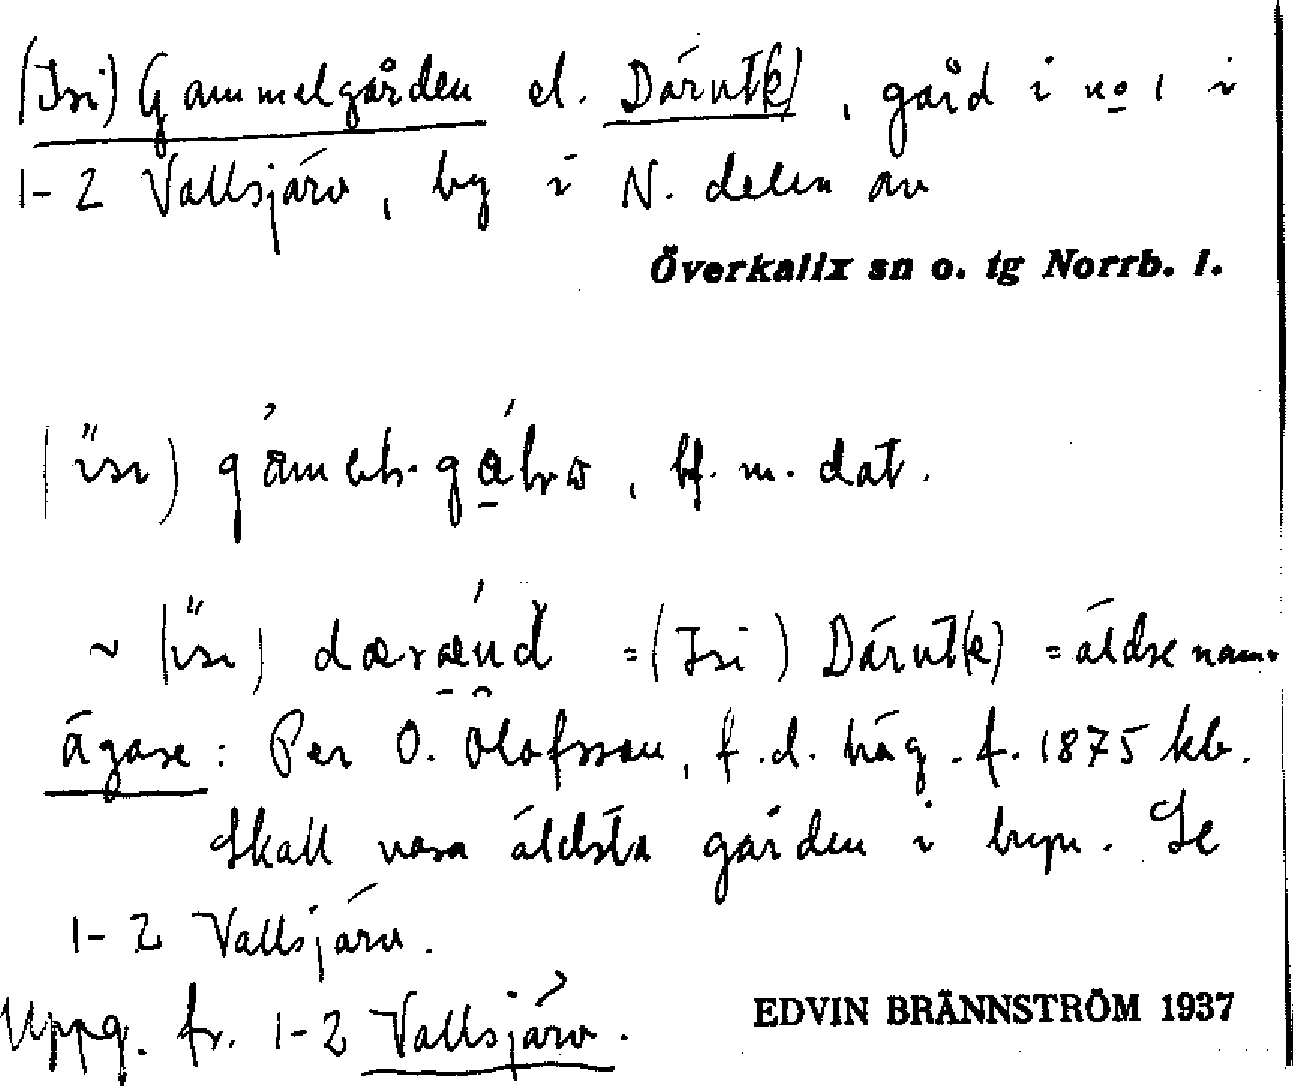 (Isi) Gammelgården el. Därut(e), gård i no 1 i
1-2 Vallsjärv, by i N. delen av
Överkalix sn o. tg Norrb. l.
bf. m. dat.
= (Isi) Därut(e) = äldre namn
ägare: Per O. Olofsson, f.d. häg. f. 1875 kb.
Skall vara äldsta gården i byn. Se
1-2 Vallsjärv.
Uppg. fr. 1-2 Vallsjärv.
EDVIN BRÄNNSTRÖM 1937